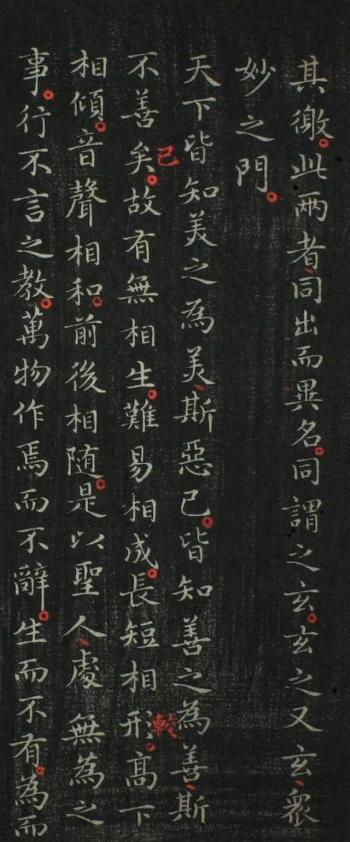 其徼此兩者同出而異名同謂之玄玄之又玄衆
妙之門
天下皆知美之為美斯惡已皆知善之為善斯
不善矣故有無相生難易相成長短相形高下
相傾音聲相和前後相随是以聖人處無為之
事行不言之教萬物作焉而不辭生而不有為而
已
較